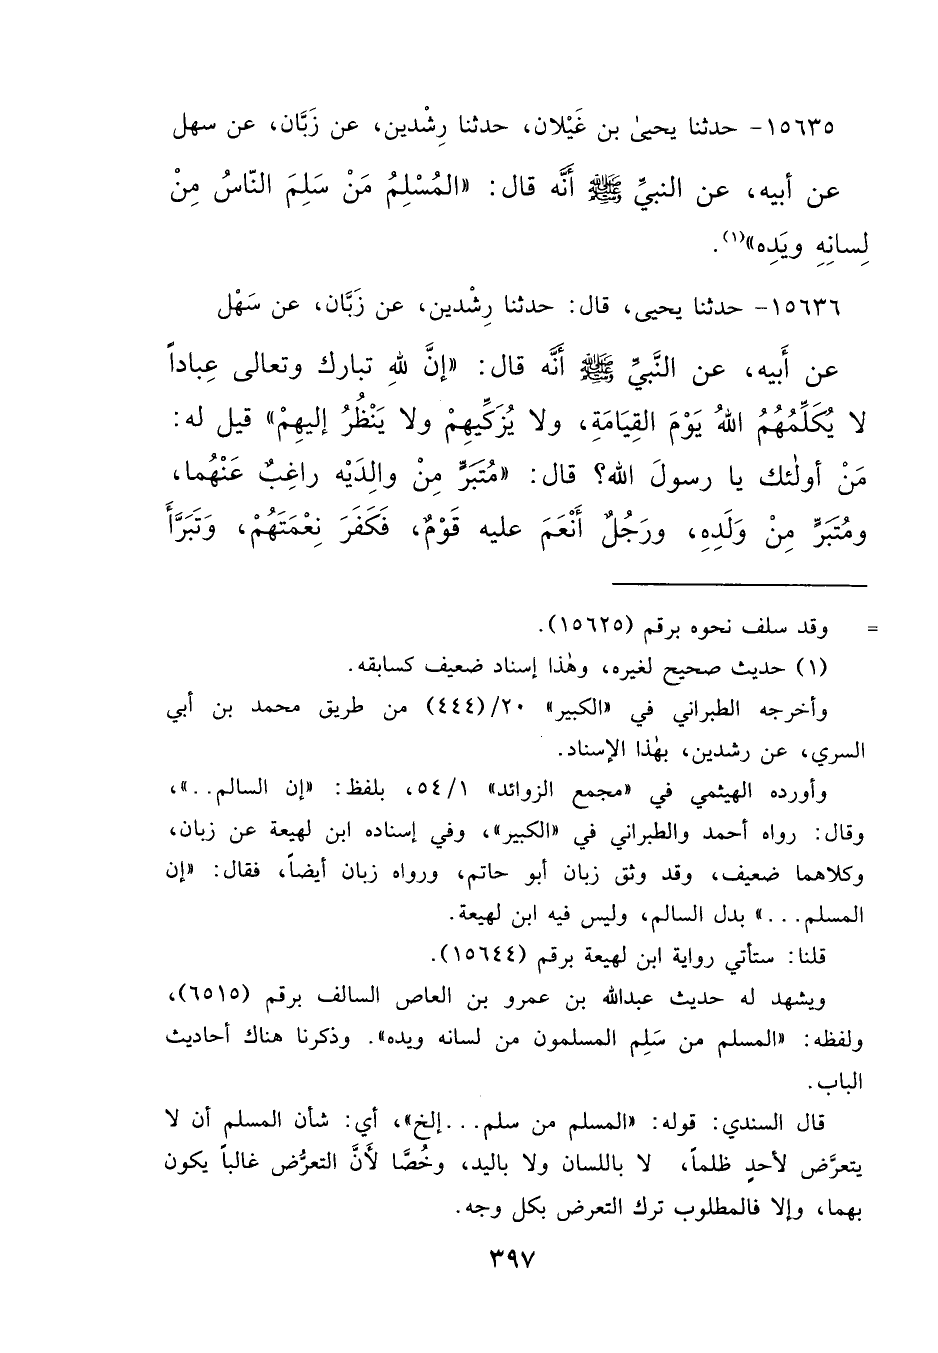 ١٥٦٣٥- حدثنا يحيىٰ بن غَيْلان، حدثنا رِشْدين، عن زَبَّان، عن سهل
عن أبيه، عن النبيِّ ﷺ أنَّه قال: «المُسْلِمُ مَنْ سَلِمَ النّاسُ مِنْ
لِسانِهِ ويَدِه»(١).
١٥٦٣٦- حدثنا يحيى، قال: حدثنا رِشْدين، عن زَبَّان، عن سَهْل
عن أَبيه، عن النَّبيِّ ﷺ أنَّه قال: «إنَّ للهِ تبارك وتعالى عِباداً
لا يُكَلِّمُهُمُ اللهُ يَوْمَ القِيَامَةِ، ولا يُزَكِّيهِمْ ولا يَنْظُرُ إليهِمْ» قيل له:
مَنْ أولٰئك يا رسولَ الله؟ قال: «مُتَبَرٍّ مِنْ والِدَيْه راغِبٌ عَنْهُما،
ومُتَبَرٍّ مِنْ وَلَدِهِ، ورَجُلٌ أَنْعَمَ عليه قَوْمٌ، فَكَفَرَ نِعْمَتَهُمْ، وَتَبَرَّأَ
= وقد سلف نحوه برقم (١٥٦٢٥).
(١) حديث صحيح لغيره، وهٰذا إسناد ضعيف كسابقه.
وأخرجه الطبراني في «الكبير» ٢٠/(٤٤٤) من طريق محمد بن أبي
السري، عن رشدين، بهٰذا الإسناد.
وأورده الهيثمي في «مجمع الزوائد» ٥٤/١، بلفظ: «إن السالم..»،
وقال: رواه أحمد والطبراني في «الكبير»، وفي إسناده ابن لهيعة عن زبان،
وكلاهما ضعيف، وقد وثق زبان أبو حاتم، ورواه زبان أيضاً، فقال: «إن
المسلم...» بدل السالم، وليس فيه ابن لهيعة.
قلنا: ستأتي رواية ابن لهيعة برقم (١٥٦٤٤).
ويشهد له حديث عبدالله بن عمرو بن العاص السالف برقم (٦٥١٥)،
ولفظه: «المسلم من سَلِم المسلمون من لسانه ويده». وذكرنا هناك أحاديث
الباب.
قال السندي: قوله: «المسلم من سلم...إلخ»، أي: شأن المسلم أن لا
يتعرَّض لأحدٍ ظلماً، لا باللسان ولا باليد، وخُصَّا لأَنَّ التعرُّض غالباً يكون
بهما، وإلا فالمطلوب ترك التعرض بكل وجه.
٣٩٧